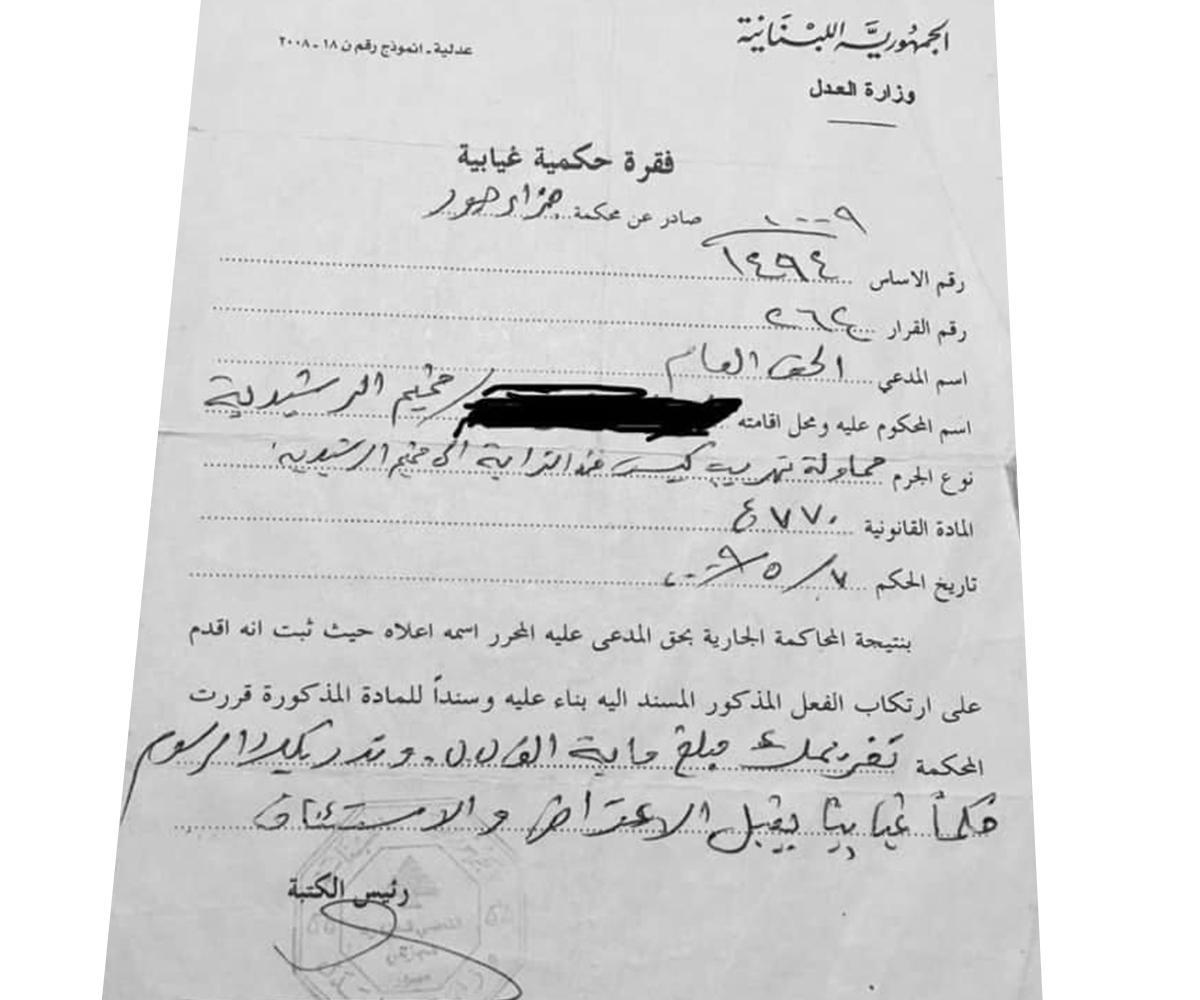 الجمهوريّة اللبنانية
عدلية ـ انموذج رقم ن ١٨ ـ ٢٠٠٨
وزارة العدل
فقرة حكمية غيابية
صادر عن محكمة جزاء صور
٢٠٠٩
رقم الاساس ١٤٩٤
رقم القرار ٢٦٢
اسم المدعي الحق العام
اسم المحكوم عليه ومحل اقامته / مخيم الرشيدية
نوع الجرم محاولة تهريب كيس الترابة الى مخيم الرشيدية
المادة القانونية ٧٧٠
تاريخ الحكم ٧/٥/٢٠٠٩
بنتيجة المحاكمة الجارية بحق المدعى عليه المحرر اسمه اعلاه حيث ثبت انه اقدم
على ارتكاب الفعل المذكور المسند اليه بناء عليه وسنداً للمادة المذكورة قررت
المحكمة تغريمك مبلغ ماية الف ل.ل. وتدريكك الرسوم
حكماً غيابياً يقبل الاعتراض والاستئناف
رئيس الكتبة